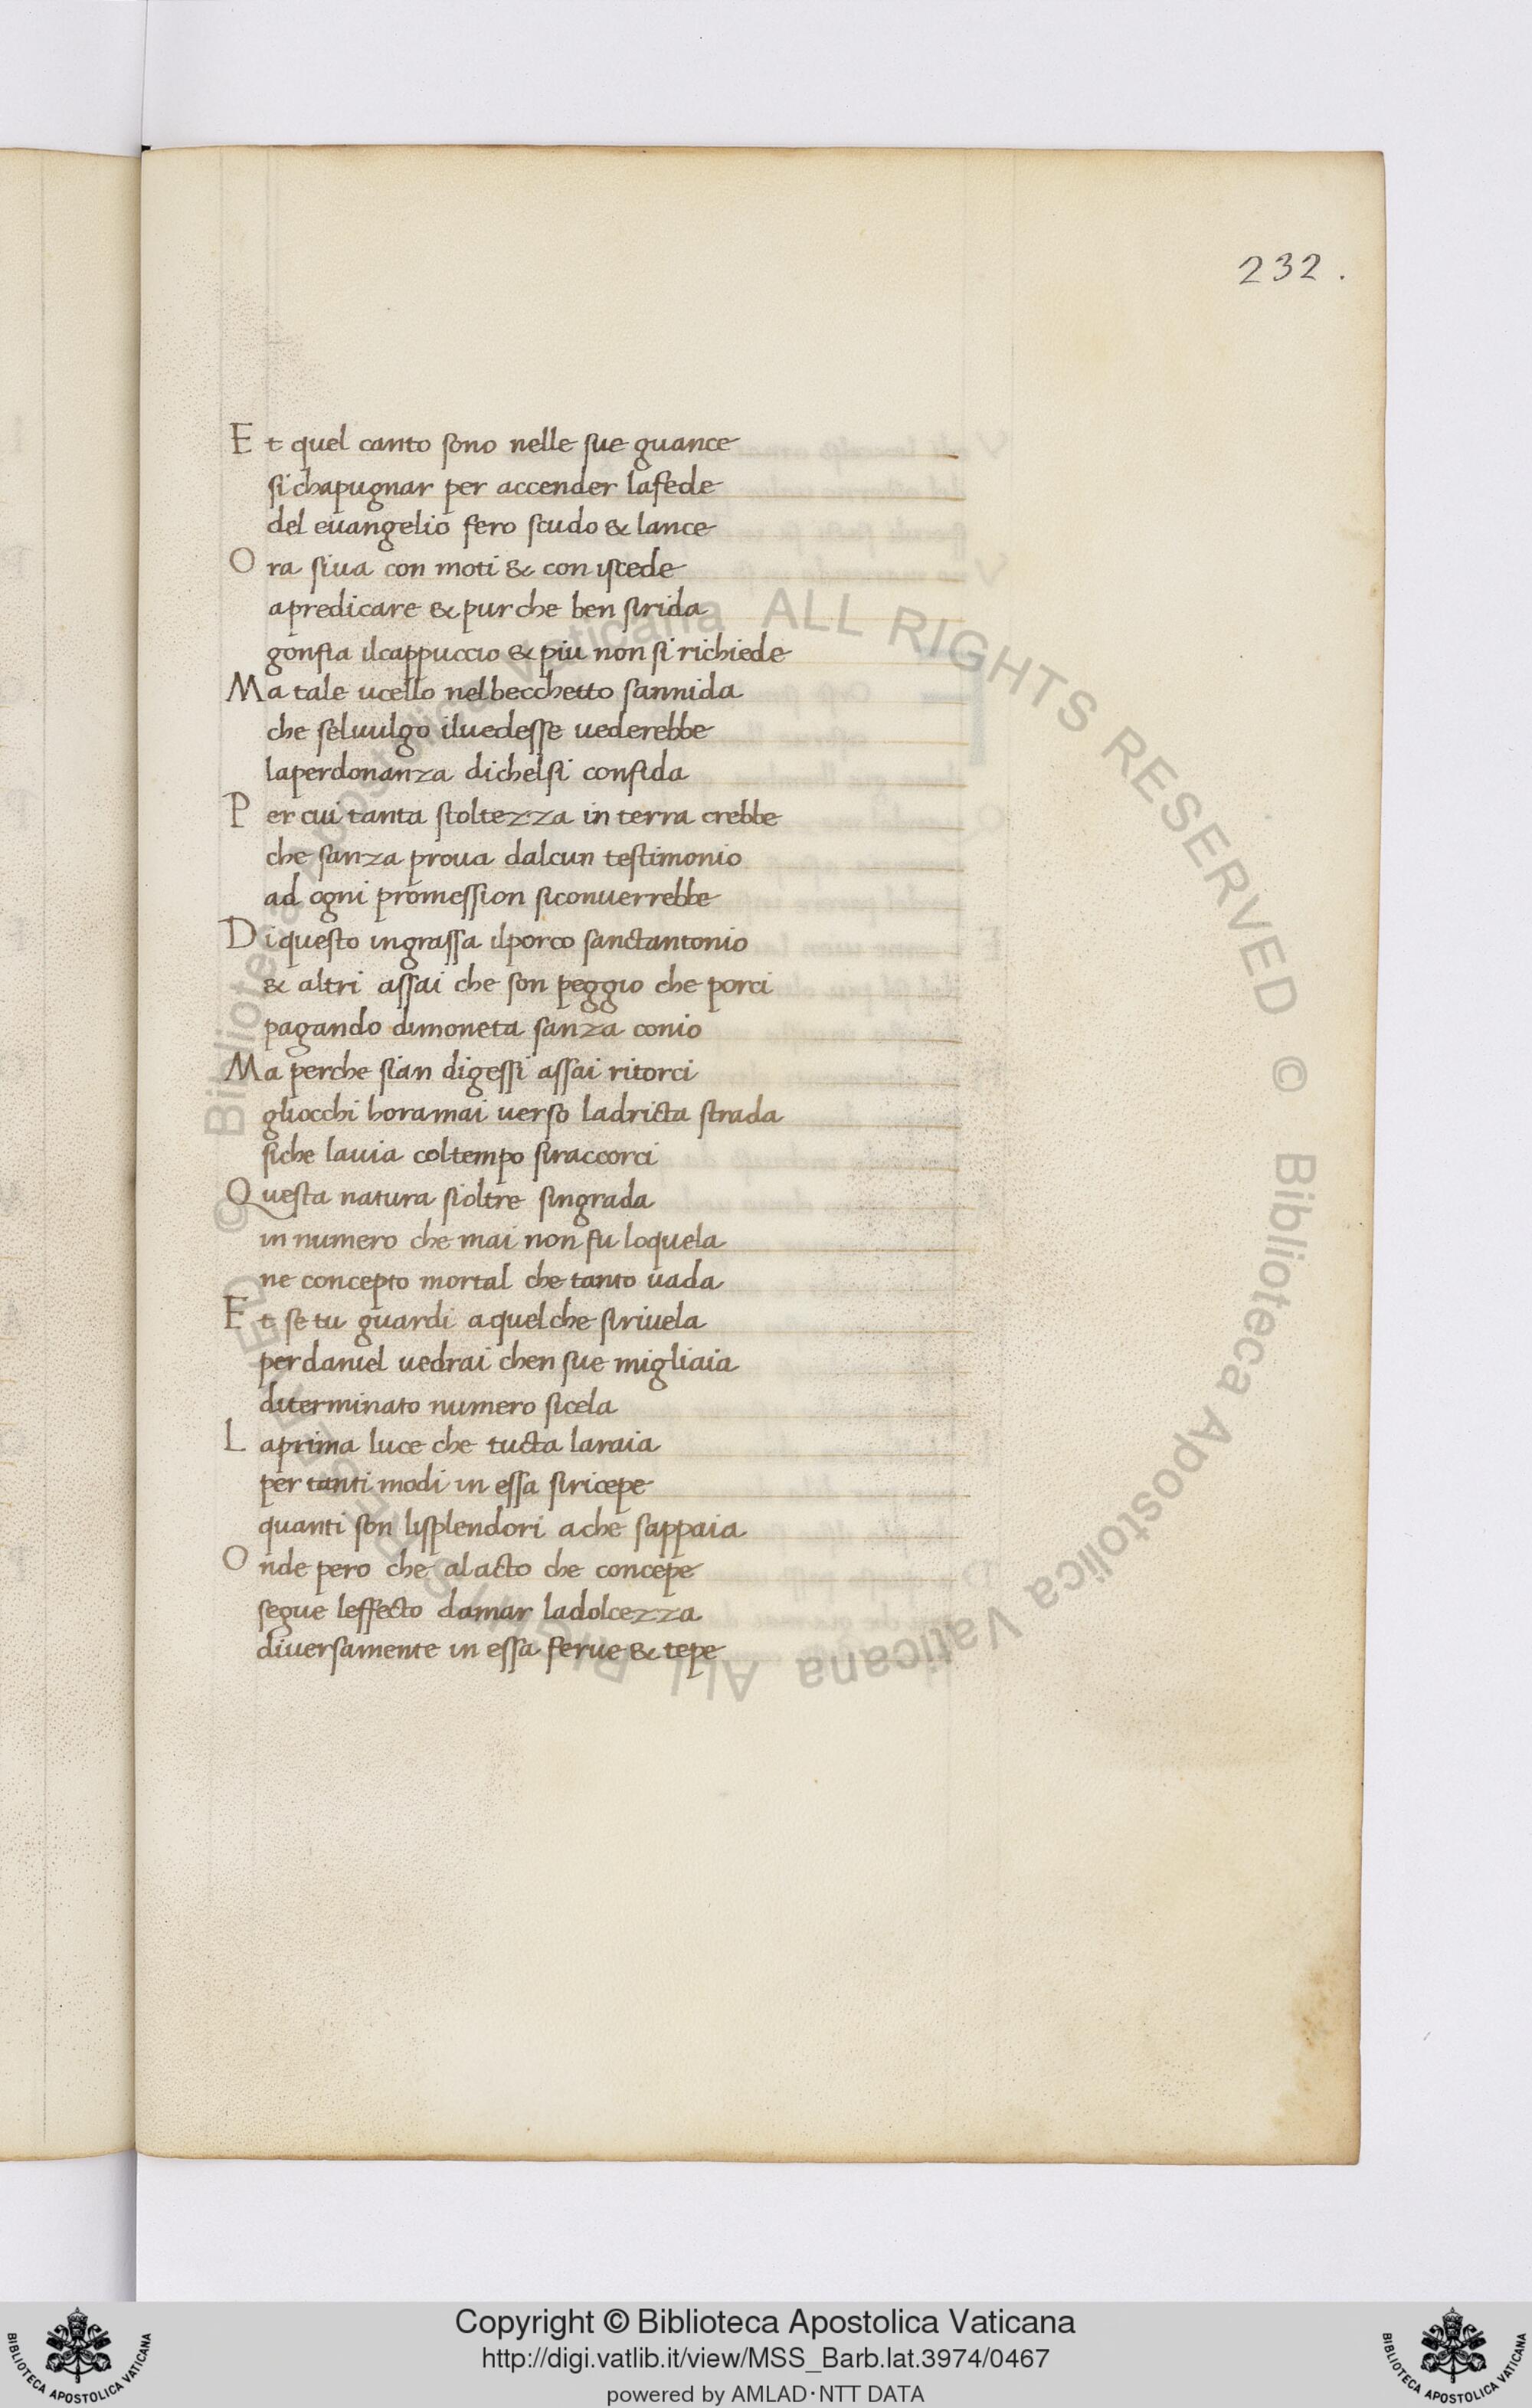 232.
Et quel canto sono nelle sue guance
si chapugnar per accender lafede
del euangelio fero scudo & lance
Ora siua con moti & con iscede
apredicare & pur che ben sirida
gonfia ilcappuccio & piu non si richiede
Ma tale ucello nelbecchetto sannida
che seluulgo iluedesse uederebbe
laperdonanza dichelsi confida
Per cui tanta stoltezza in terra crebbe
che sanza proua dalcun testimonio
ad ogni promession siconuerrebbe
Di questo ingrassa ilporco sanctantonio
& altri assai che son peggio che porci
pagando dimoneta sanza conio
Ma perche sian digessi assai ritorci
gliocchi horamai uerso ladricta strada
siche lauia coltempo siraccorci
Questa natura sioltre singrada
in numero che mai non fu loquela
ne concepto mortal che tanto uada
Et se tu guardi aquelche siriuela
perdaniel uedrai chen sue migliaia
diterminato numero sicela
Laprima luce che tucta laraia
per tanti modi in essa siricepe
quanti son lisplendori ache sappaia
Onde pero che alacto che concepe
segue leffecto damar ladolcezza
diuersamente in essa ferue & tepe
© Biblioteca Apostolica Vaticana ALL RIGHTS RESERVED © Biblioteca Apostolica Vaticana ALL RIGHTS RESERVED
Copyright © Biblioteca Apostolica Vaticana
http://digi.vatlib.it/view/MSS_Barb.lat.3974/0467
powered by AMLAD·NTT DATA
BIBLIOTECA APOSTOLICA VATICANA
BIBLIOTECA APOSTOLICA VATICANA